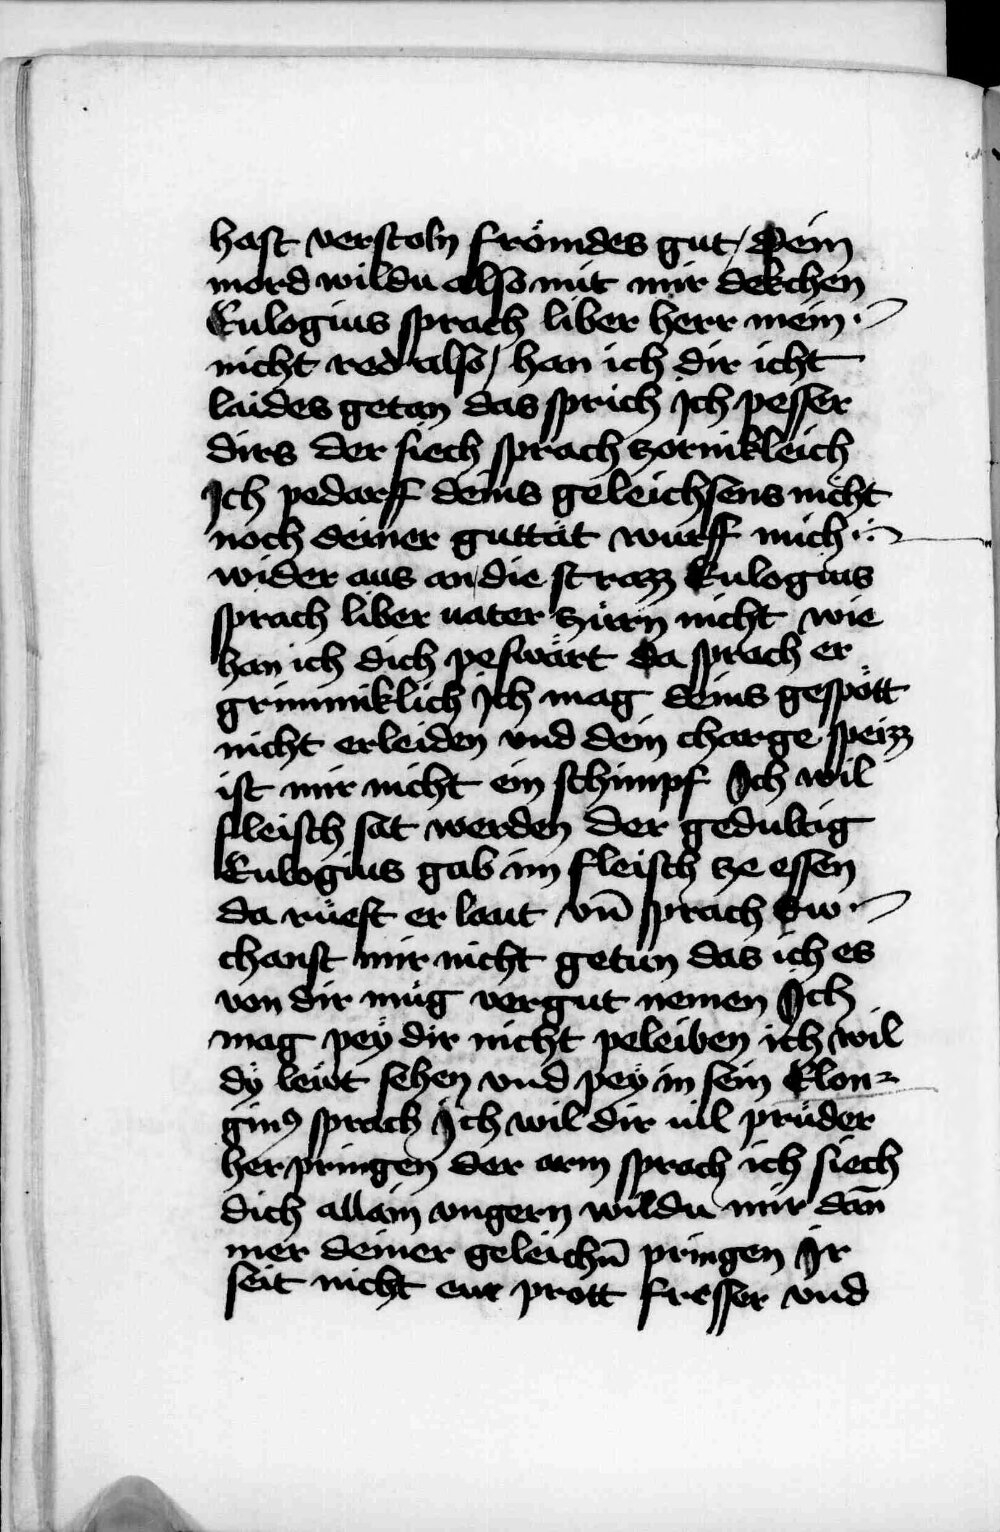 hast verstoln frömdes gut / Dein
mord wildu also mit mir dekchen
Eulogius sprach liber herr mein
nicht red also / han ich dir icht
laides getan das sprich Jch pesser
dirs der siech sprach zornikleich
Jch pedarff deins geleichsens nicht
noch deiner guttät wurff mich
wider aus an die strazz Eulogius
sprach liber uater zürn nicht wie
han ich dich peswärt Da sprach er
grimmiklich Jch mag deins gespött
nicht erleiden vnd dein charge speizz
ist mir nicht ein schimpf Jch wil
fleisch sat werden Der gedultig
Eulogius gab im fleisch ze essen
da rüeft er laut vn̄ sprach Dw
chanst mir nicht getun das ich es
von dir müg vergut nemen Jch
mag peÿ dir nicht peleiben ich wil
dÿ lewt sehen vnd peÿ in sein Elon=
gin⁹ sprach Jch wil dir uil prüder
her pringen der arm sprach ich siech
dich allain vngern wildu mir dan̄
mer deiner geleichn̄ pringen Jr
seit nicht eur prott fresser vnd